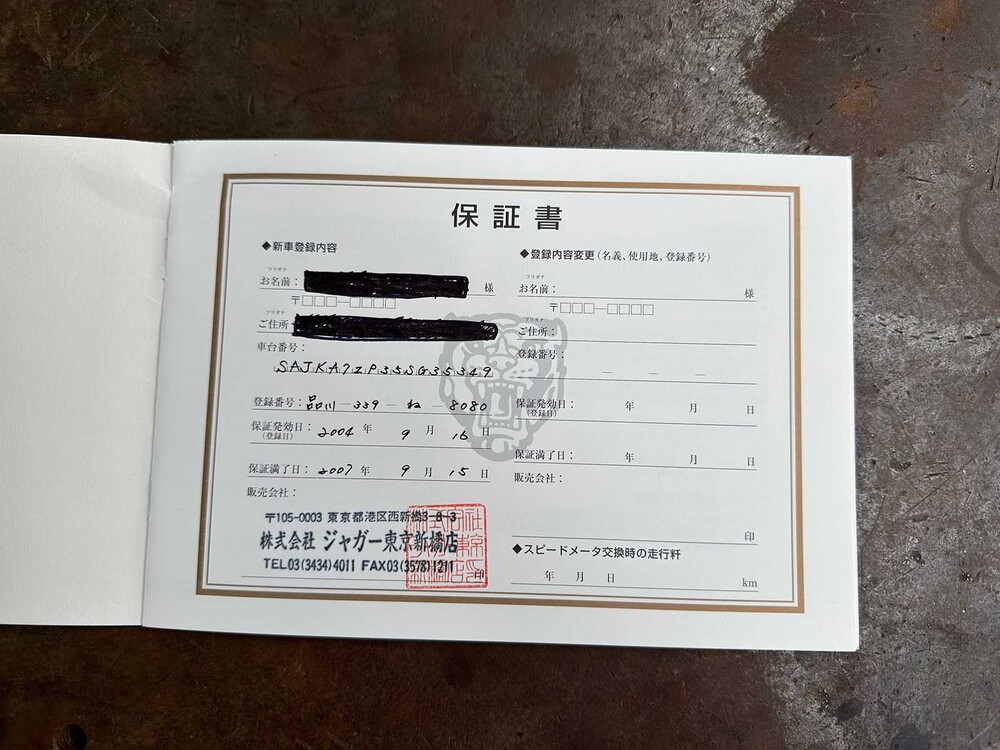 保証書
◆新車登録内容
フリガナ
お名前： 様
〒□□□-□□□□
フリガナ
ご住所：
車台番号：
SAJKA71P55SG35349
登録番号：品川-339-ね-8080
保証発効日： 2004年 9月 16日
(登録日)
保証満了日： 2007年 9月 15日
販売会社：
〒105-0003 東京都港区西新橋3-8-3
株式会社 ジャガー東京新橋店
TEL03(3434)4011 FAX03(3578)1211
印
◆登録内容変更(名義、使用地、登録番号)
フリガナ
お名前： 様
〒□□□-□□□□
フリガナ
ご住所：
登録番号： — — —
保証発効日： 年 月 日
(登録日)
保証満了日： 年 月 日
販売会社：
印
◆スピードメータ交換時の走行粁
年 月 日 km